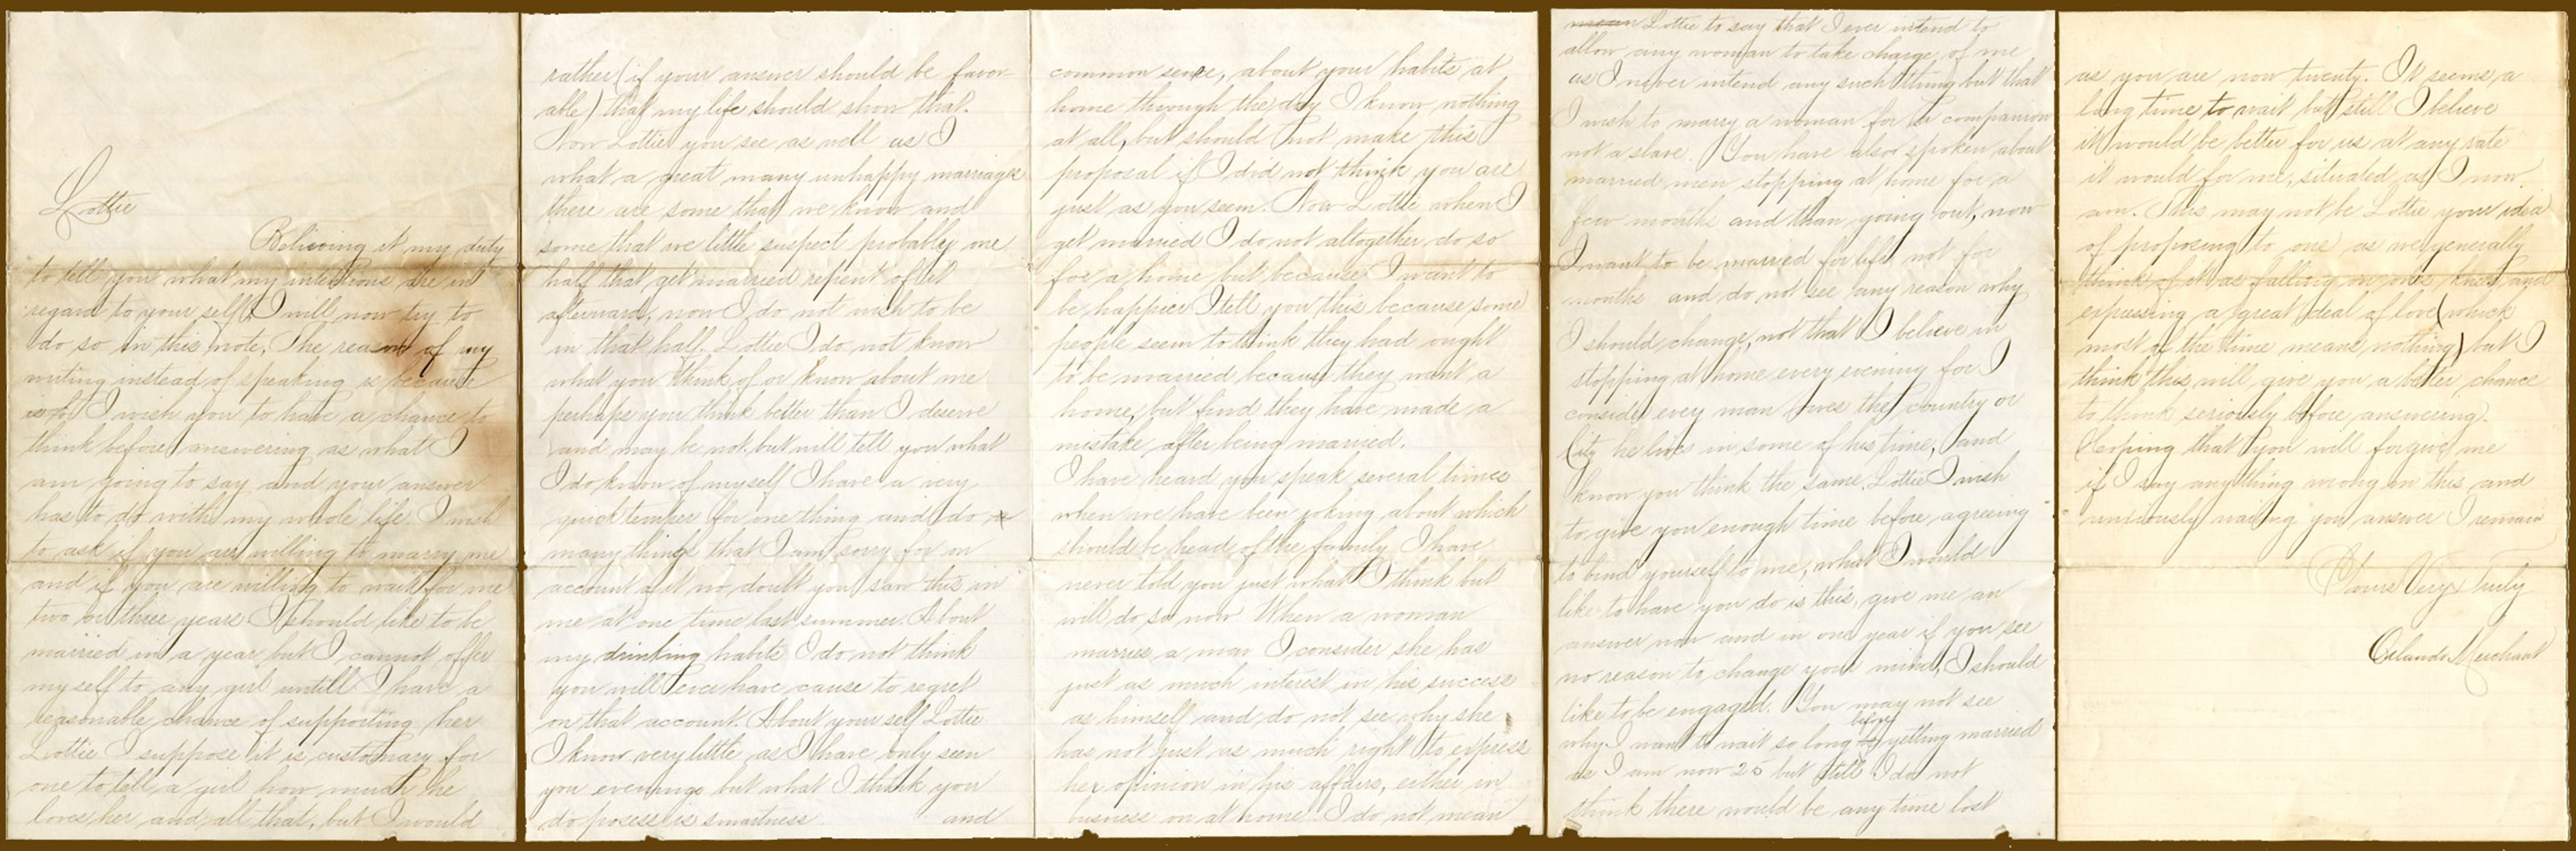 Lottie
Believing it my duty
to tell you what my intentions are in
regard to your self I will now try to
do so in this note, The reason of my
writing instead of speaking is because
I wish you to have a chance to
think before answering as what I
am going to say and your answer
has to do with my whole life. I wish
to ask if you are willing to marry me
and if you are willing to wait for me
two or three years I should like to be
married in a year but I cannot offer
myself to any girl untill I have a
reasonable chance of supporting her
Lottie I suppose it is customary for
one to tell a girl how much he
loves her and all that, but I would
rather (if your answer should be favor-
able) that my life should show that.
Now Lottie you see as well as I
what a great many unhappy marriages
there are some that we know and
some that we little suspect probably one
half that get married repent of it
afterward, now I do not wish to be
in that half. Lottie I do not know
what you think of or know about me
perhaps you think better than I deserve
and may be not. but will tell you what
I do know of myself I have a very
quick temper for one thing and do
many things that I am sorry for on
account of it no doubt you saw this in
me at one time last summer. About
my drinking habits I do not think
you will ever have cause to regret
on that account. About your self Lottie
I know very little as I have only seen
you evenings but what I think you
do posess is smartness and
common sence, about your habits at
home through the day I know nothing
at all, but should not make this
proposal if I did not think you are
just as you seem. Now Lottie when I
get married I do not altogether do so
for a home but because I want to
be happier I tell you this because some
people seem to think they had ought
to be married because they want a
home, but find they have made a
mistake after being married.
I have heard you speak several times
when we have been joking about which
should be head of the family I have
never told you just what I think but
will do so now. When a woman
marries a man I consider she has
just as much interest in his success
as himself and do not see why she
has not just as much right to express
her opinion in his affairs, either in
business or at home. I do not mean
mean Lottie to say that I ever intend to
allow any woman to take charge of me
as I never intend any such thing but that
I wish to marry a woman for a companion
not a slave. You have also spoken about
married men stopping at home for a
few months and than going out, now
I want to be married for life not for
months and do not see any reason why
I should change, not that I believe in
stopping at home every evening for I
consider every man owes the country or
City he lives in some of his time, and
know you think the same. Lottie I wish
to give you enough time before agreeing
to bind yourself to me, what I would
like to have you do is this, give me an
answer now and in one year if you see
no reason to change your mind, I should
like to be engaged. You may not see
why I want to wait so long before getting married
as I am now 25 but still I do not
think there would be any time lost
as you are now twenty. It seems a
long time to wait but still I believe
it would be better for us at any rate
it would for me, situated as I now
am. This may not be Lottie your idea
of proposing to one as we generally
think of it as falling on ones knees and
expressing a great deal of love (which
most of the time means nothing) but I
think this will give you a better chance
to think seriously before answering.
Hoping that you will forgive me
if I say anything wrong in this and
anxiously waiting you answer I remain
Yours Very Truly
Orlando Merchant